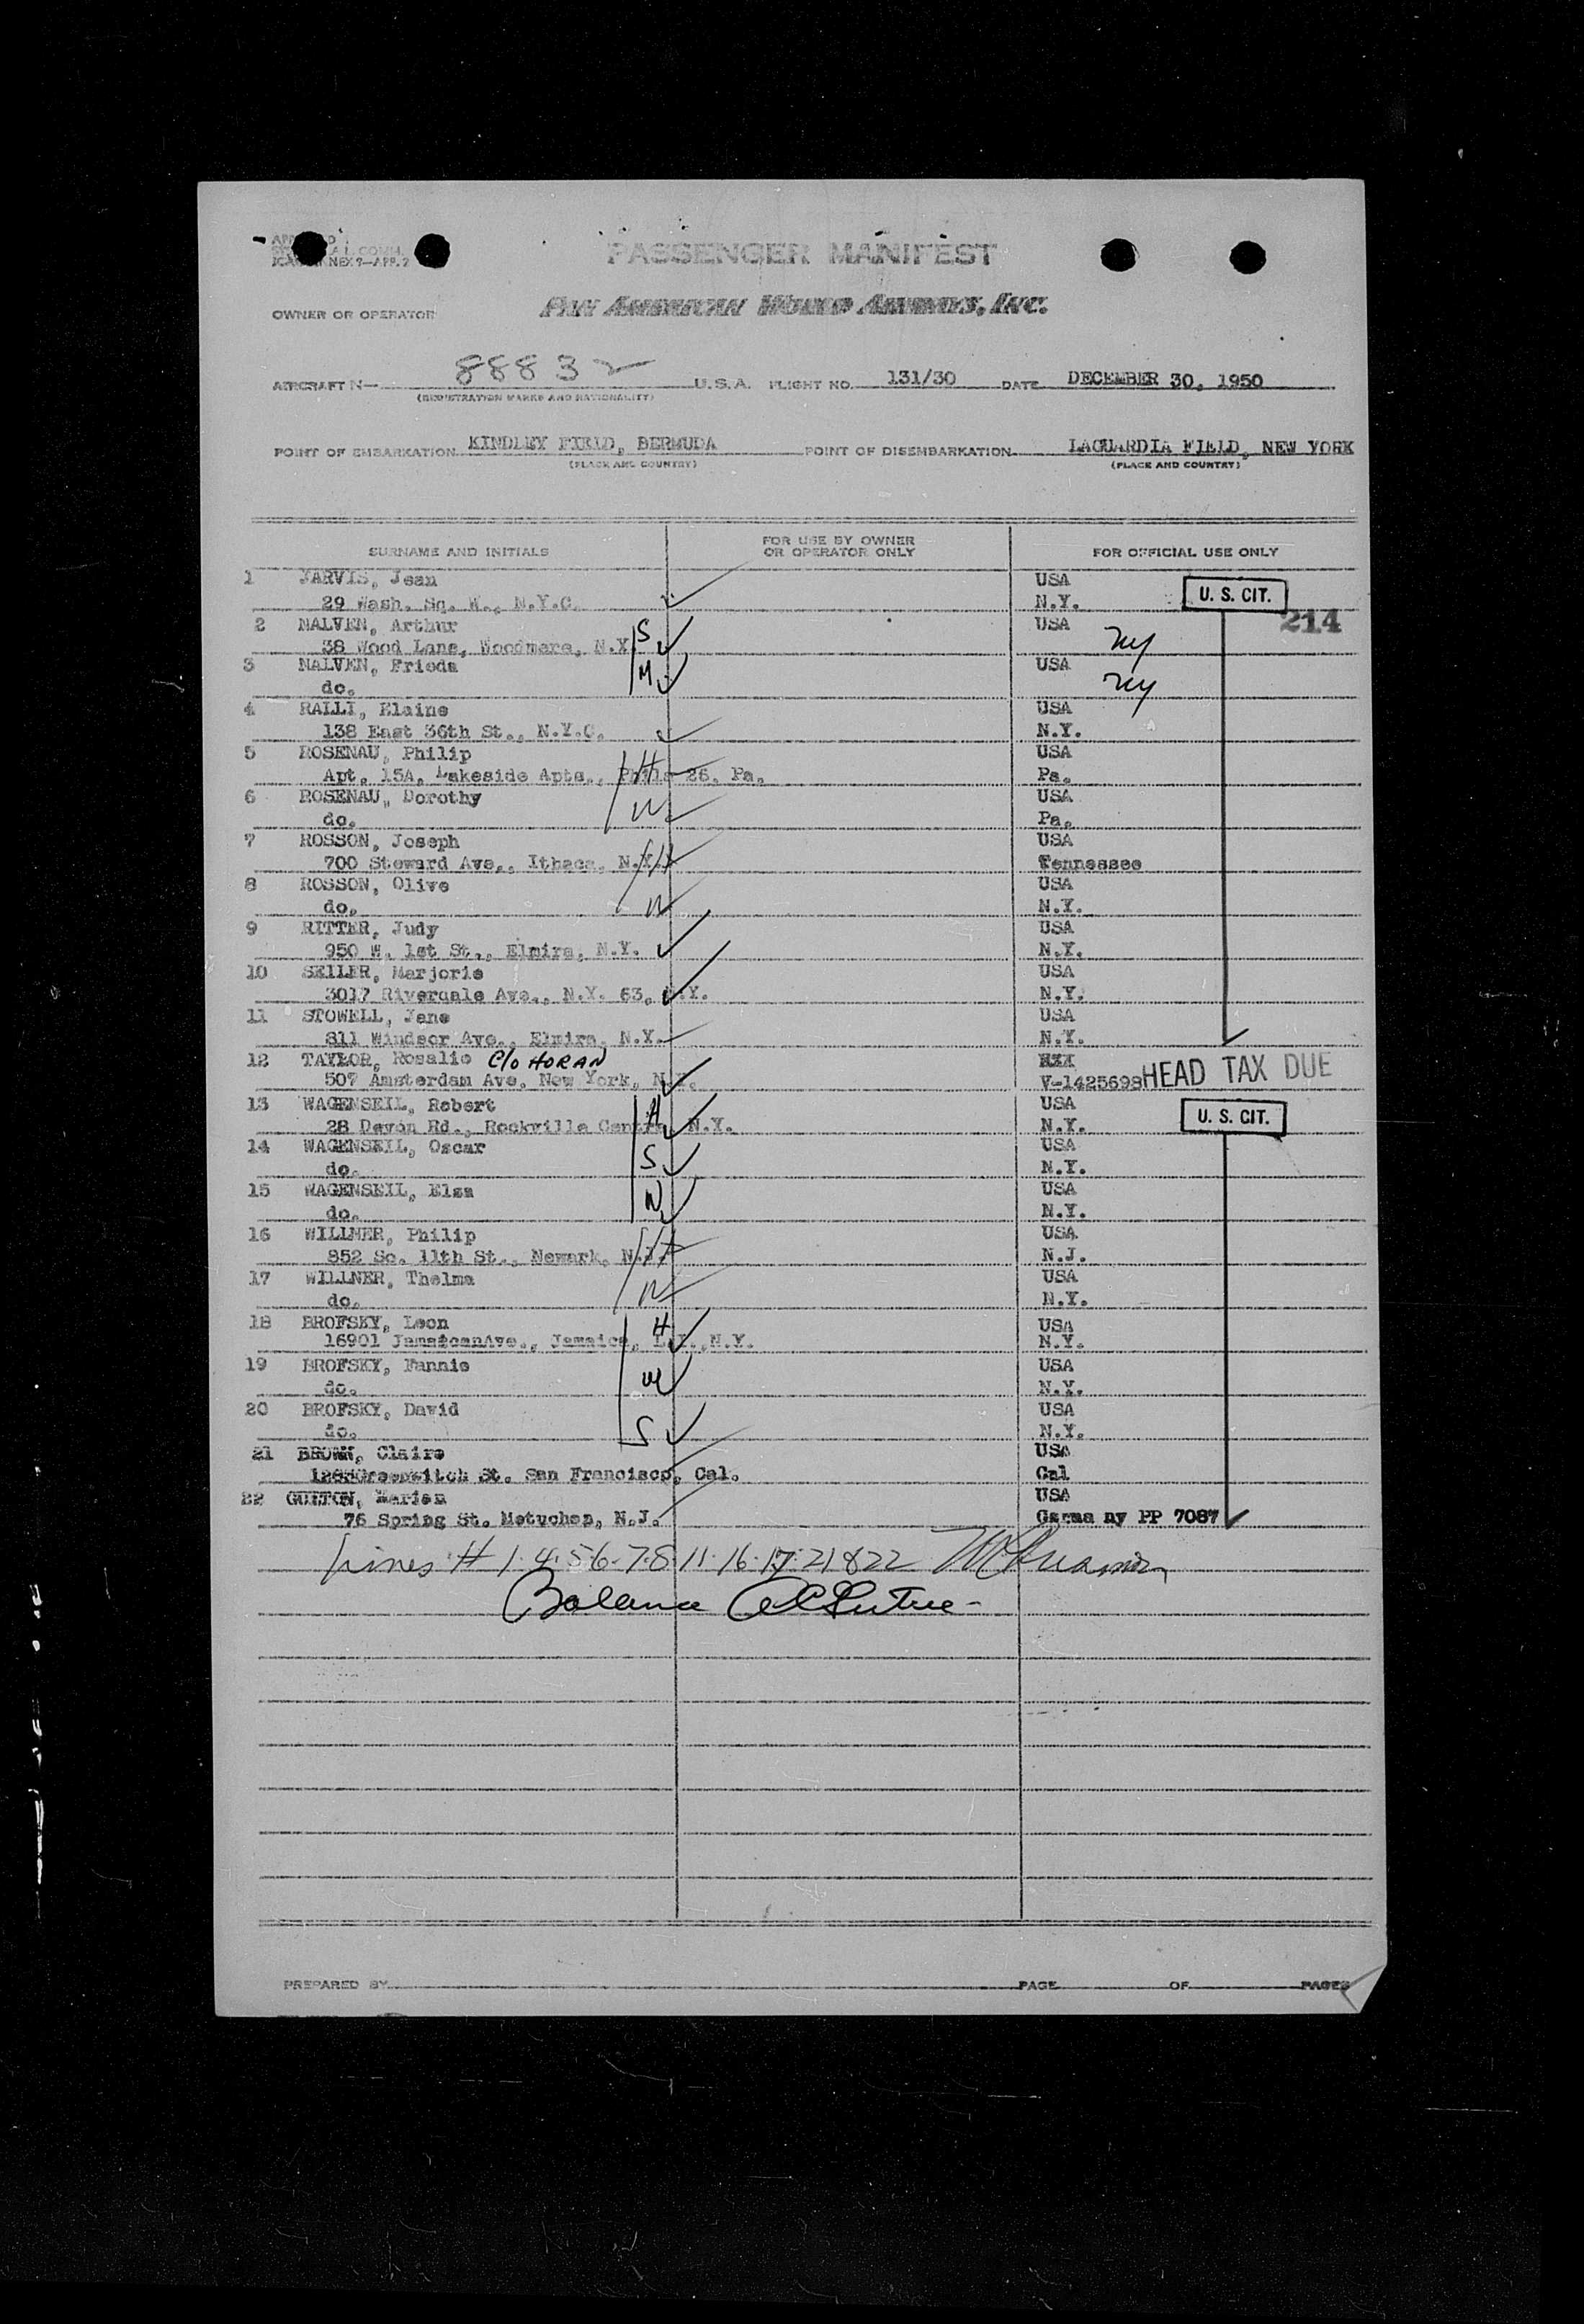 PASSENGER MANIFEST
OWNER OR OPERATOR PAN AMERICAN WORLD AIRWAYS, INC.
AIRCRAFT N— 88832 U.S.A. FLIGHT NO. 131/30 DATE DECEMBER 30, 1950
(REGISTRATION MARKS AND NATIONALITY)
POINT OF EMBARKATION KINDLEY FIELD, BERMUDA POINT OF DISEMBARKATION LAGUARDIA FIELD, NEW YORK
(PLACE AND COUNTRY) (PLACE AND COUNTRY)
SURNAME AND INITIALS FOR USE BY OWNER OR OPERATOR ONLY FOR OFFICIAL USE ONLY
1 JARVIS, Jean USA
29 Wash. Sq. W., N.Y.C. N.Y. U. S. CIT.
214
2 NALVEN, Arthur S USA
38 Wood Lane, Woodmere, N.Y. ny
3 NALVEN, Frieda M USA
do. ny
4 RALLI, Elaine USA
138 East 36th St., N.Y.C. N.Y.
5 ROSENAU, Philip USA
Apt. 15A, Lakeside Apts., Phila 26, Pa. H Pa.
6 ROSENAU, Dorothy USA
do. W Pa.
7 ROSSON, Joseph USA
700 Steward Ave., Ithaca, N.Y. H Tennessee
8 ROSSON, Olive USA
do. W N.Y.
9 RITTER, Judy USA
950 W. 1st St., Elmira, N.Y. N.Y.
10 SEILER, Marjorie USA
3017 Riverdale Ave., N.Y. 63, N.Y. N.Y.
11 STOWELL, Jane USA
811 Windsor Ave., Elmira, N.Y. N.Y.
12 TAYLOR, Rosalie C/o HORAN
507 Amsterdam Ave, New York, N.Y. V-1425698 HEAD TAX DUE
13 WAGENSEIL, Robert H USA
28 Devon Rd., Rockville Centre, N.Y. N.Y. U. S. CIT.
14 WAGENSEIL, Oscar S USA
do. N.Y.
15 WAGENSEIL, Elsa W USA
do. N.Y.
16 WILLNER, Philip H USA
852 So. 11th St., Newark, N.J. N.J.
17 WILLNER, Thelma W USA
do. N.Y.
18 BROFSKY, Leon H USA
16901 JamaicanAve., Jamaica, L.I.,N.Y. N.Y.
19 BROFSKY, Fannie W USA
do. N.Y.
20 BROFSKY, David S USA
do. N.Y.
21 BROWN, Claire USA
St. San Francisco, Cal. Cal
22 GUITON, Marion USA
76 Spring St. Metuchen, N.J. Germa ny PP 7087
Lines # 1-4-5-6-7-8-11-16-17-21&22
Balance
PREPARED BY PAGE OF PAGES